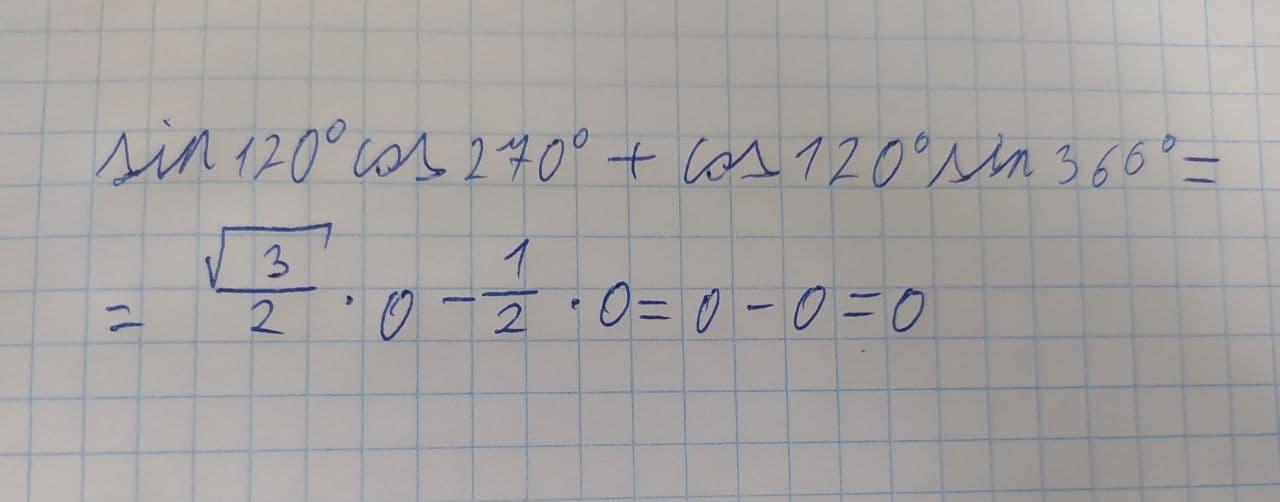 sin 120° cos 270° + cos 120° sin 360° =
= √3/2 · 0 - 1/2 · 0 = 0 - 0 = 0